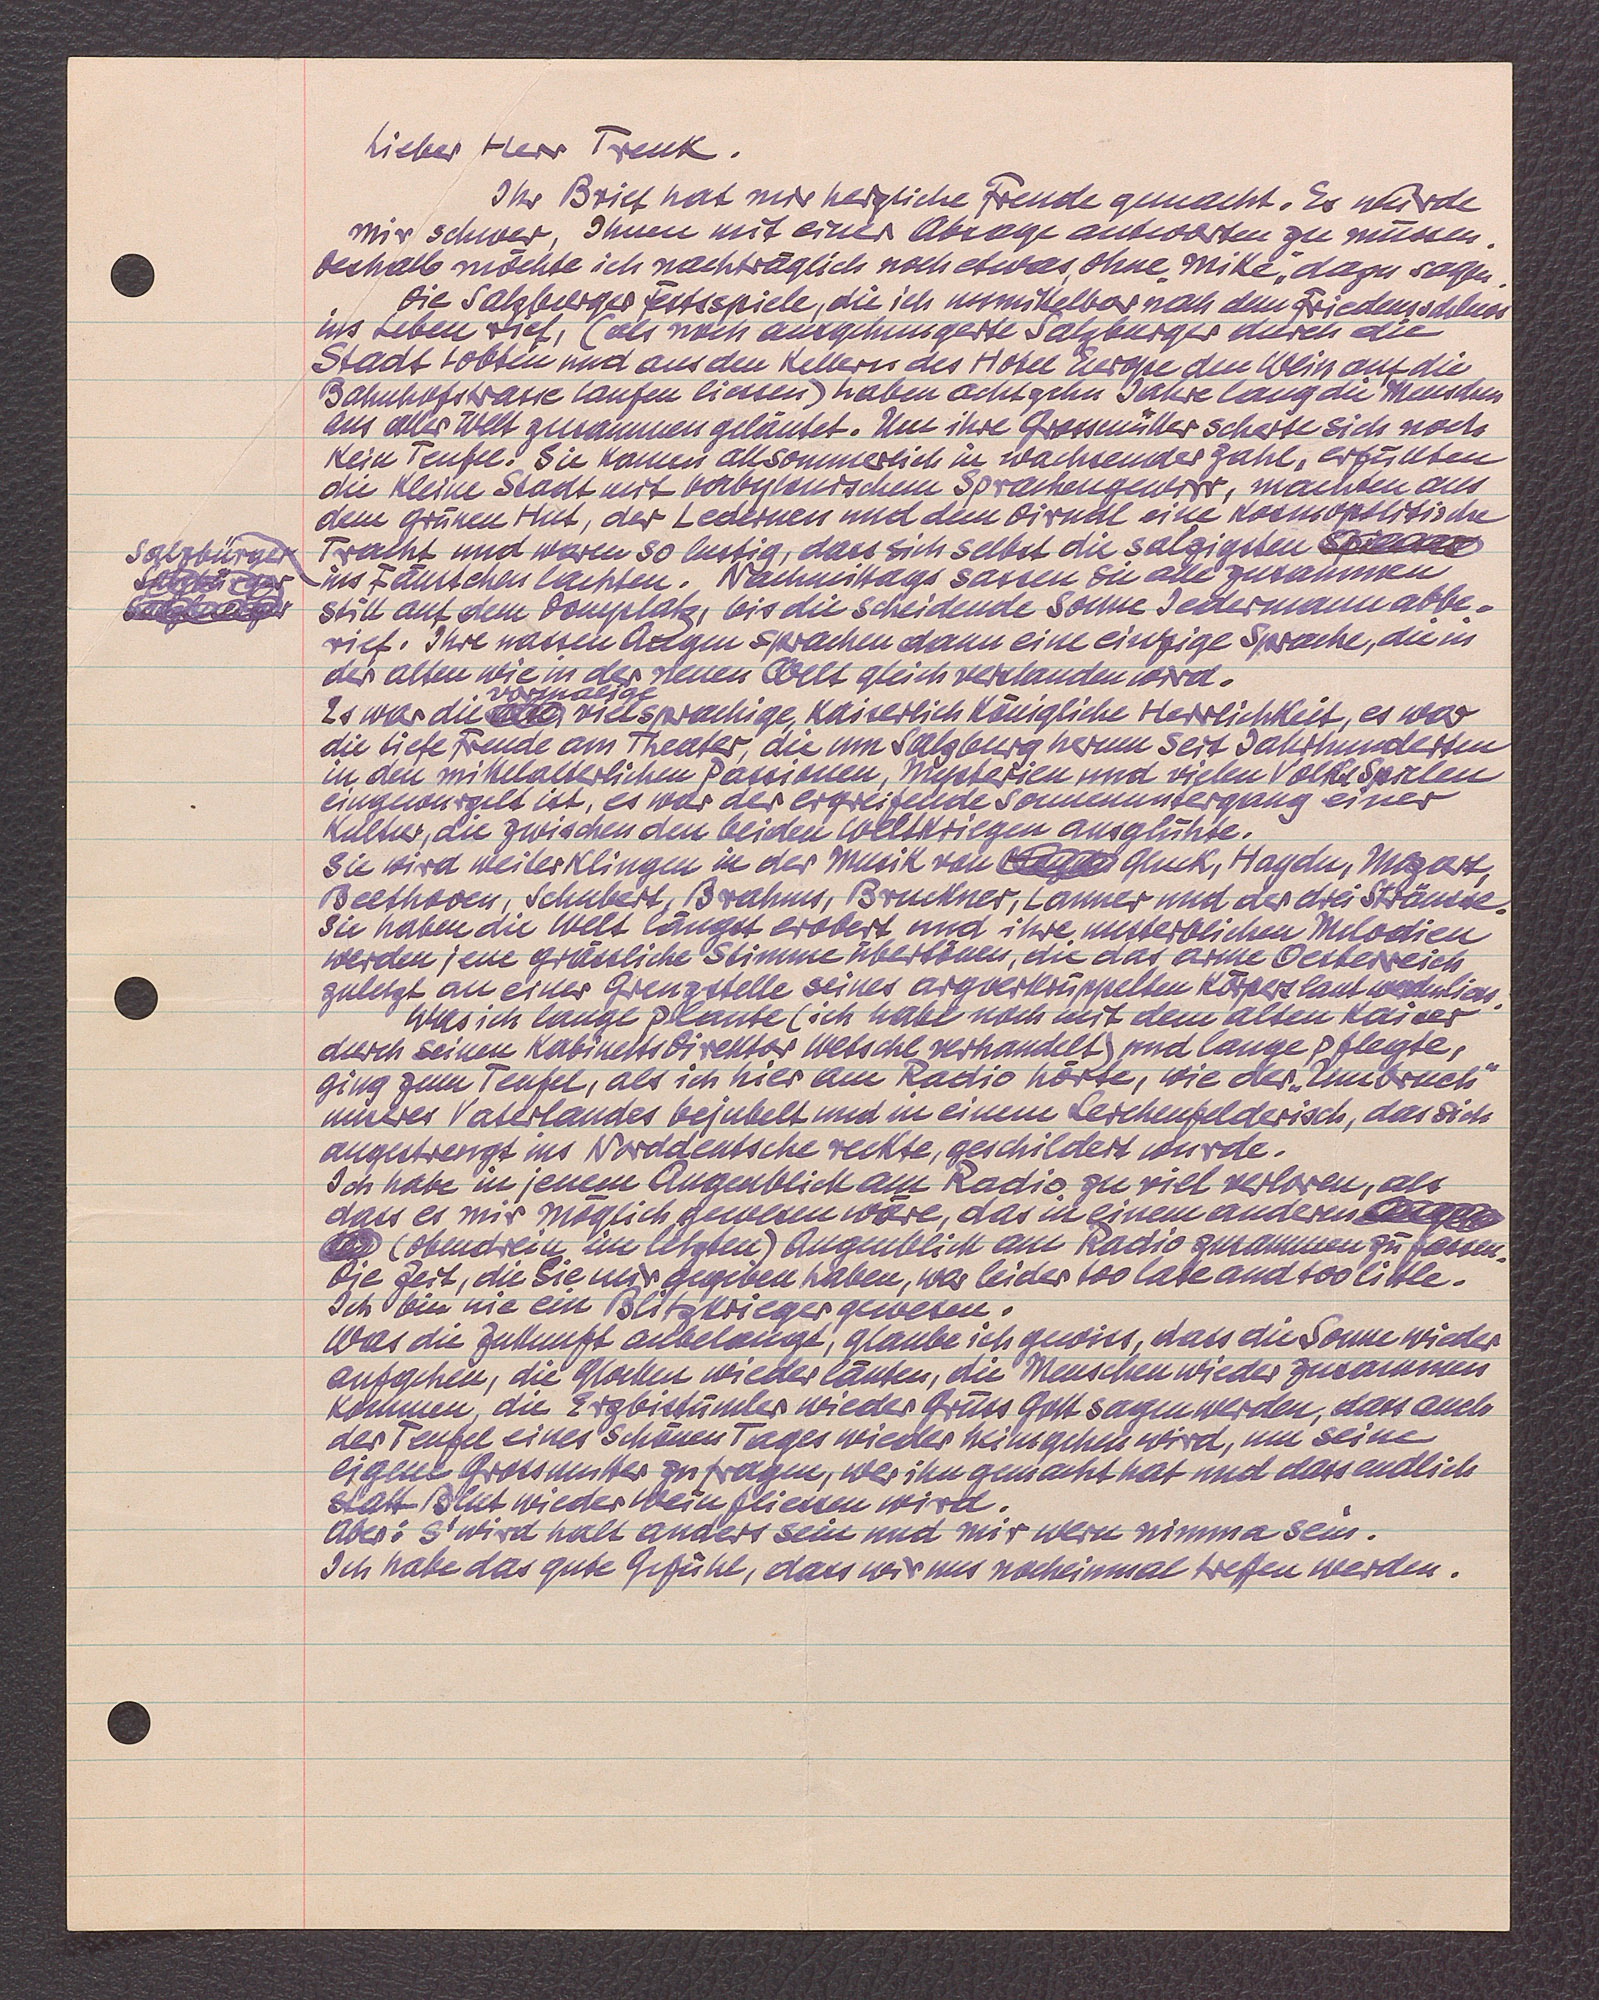 Lieber Herr Trenk.
Ihr Brief hat mir herzliche Freude gemacht. Es wurde
mir schwer, Ihnen mit einer Absage antworten zu müssen.
Deshalb möchte ich nachträglich noch etwas, ohne „Mike“, dazu sagen.
Die Salzburger Festspiele, die ich unmittelbar nach dem Friedensschluss
ins Leben rief, (als noch ausgehungerte Salzburger durch die
Stadt tobten und aus den Kellern des Hotel Europe den Wein auf die
Bahnhofstrasse laufen liessen) haben achtzehn Jahre lang die Menschen
aus aller Welt zusammengeläutet. Um ihre Grossmütter scherte sich noch
kein Teufel. Sie kamen allsommerlich in wachsender Zahl, erfüllten
die kleine Stadt mit babylonischem Sprachengewirr, machten aus
dem grünen Hut, der Ledernen und dem Dirndl eine kosmopolitische
Salzbürger
Tracht und waren so lustig, dass sich selbst die salzigsten
ins Fäustchen lachten. Nachmittags sassen sie alle zusammen
still auf dem Domplatz, bis die scheidende Sonne Jedermann abbe-
rief. Ihre nassen Augen sprachen dann eine einzige Sprache, die in
der alten wie in der neuen Welt gleich verstanden wird.
vormalige
Es war die vielsprachige, Kaiserlich Königliche Herrlichkeit, es war
die tiefe Freude am Theater, die um Salzburg herum seit Jahrhunderten
in den mittelalterlichen Passionen, Mysterien und vielen Volksspielen
eingewurzelt ist, es war der ergreifende Sonnenuntergang einer
Kultur, die zwischen den beiden Weltkriegen ausglühte.
Sie wird weiterklingen in der Musik von Gluck, Haydn, Mozart,
Beethoven, Schubert, Brahms, Bruckner, Lanner und der drei Sträusse.
Sie haben die Welt längst erobert und ihre unsterblichen Melodien
werden jene grässliche Stimme übertönen, die das arme Oesterreich
zuletzt an einer Grenzstelle seines argverkrüppelten Körpers laut werden liess.
Was ich lange plante (ich habe noch mit dem alten Kaiser
durch seinen Kabinettsdirektor verhandelt) und lange pflegte,
ging zum Teufel, als ich hier am Radio hörte, wie der „Umbruch“
unseres Vaterlandes bejubelt und in einem Lerchenfelderisch, das sich
angestrengt ins Norddeutsche reckte, geschildert wurde.
Ich habe in jenem Augenblick am Radio zu viel verloren, als
dass es mir möglich gewesen wäre, das in einem anderen
(obendrein im letzten) Augenblick am Radio zusammen zu fassen.
Die Zeit, die Sie mir gegeben haben, war leider too late and too little.
Ich bin nie ein Blitzkrieger gewesen.
Was die Zukunft anbelangt, glaube ich gewiss, dass die Sonne wieder
aufgehen, die Glocken wieder läuten, die Menschen wieder zusammen
kommen, die Erzbistümler wieder Grüss Gott sagen werden, dass auch
der Teufel eines schönen Tages wieder heimgehen wird, um seine
eigene Grossmutter zu fragen, wer ihn gemacht hat und dass endlich
statt Blut wieder Wein fliessen wird.
Aber: S' wird halt anders sein und mir wern nimma sein.
Ich habe das gute Gefühl, dass wir uns nocheinmal treffen werden.